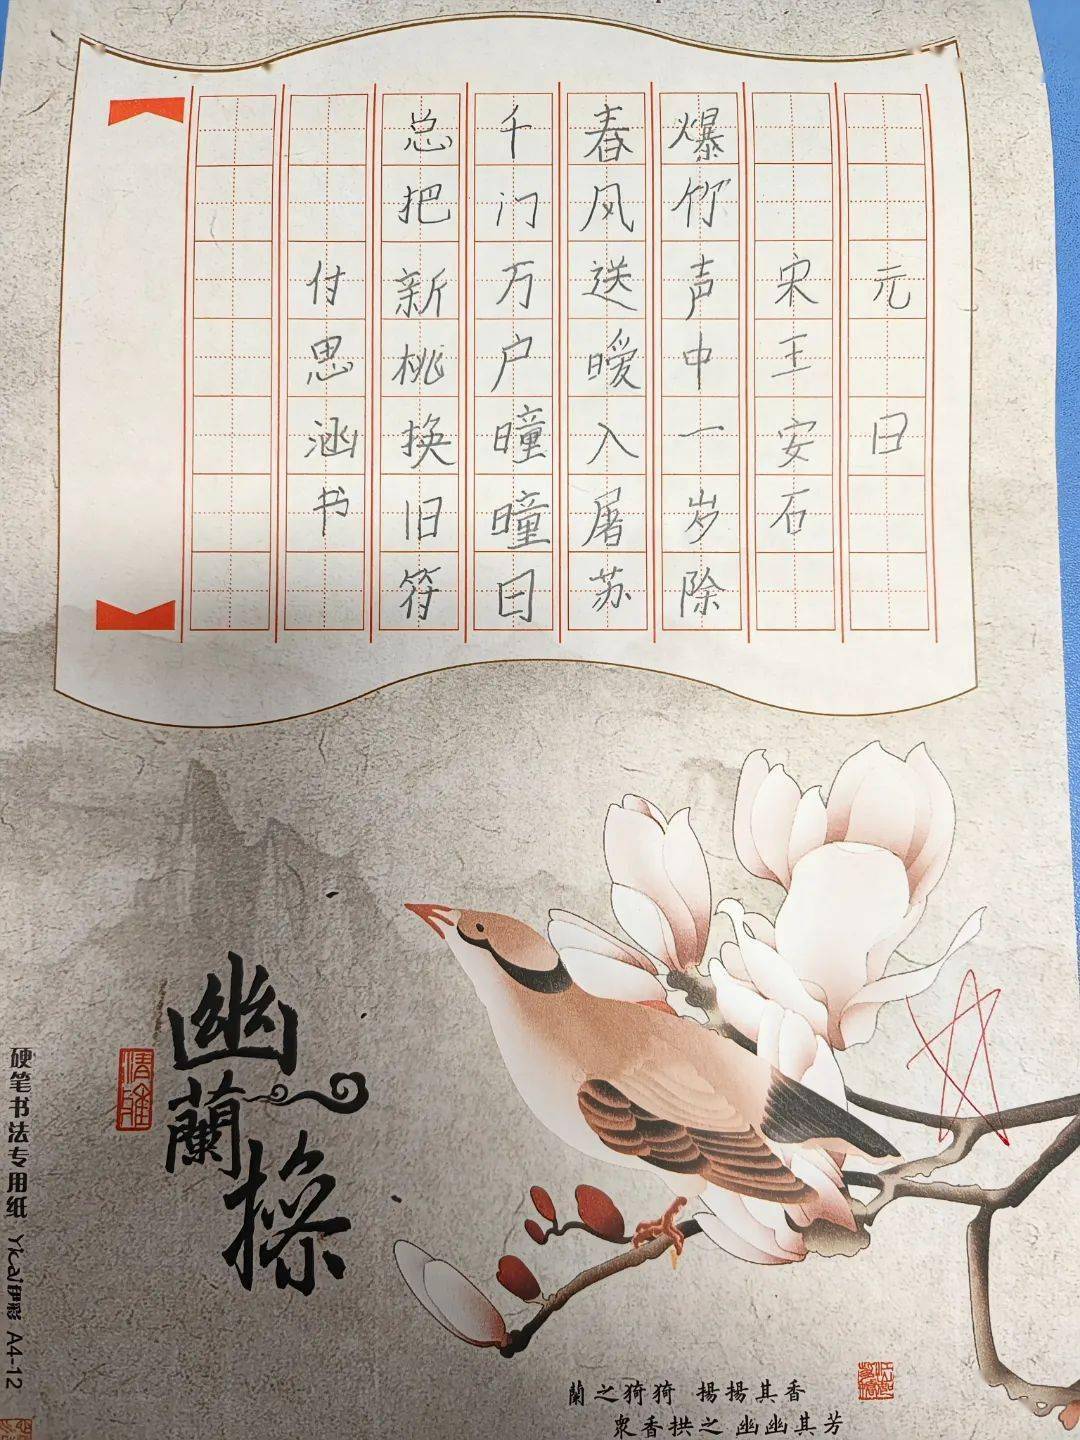 元日
宋王安石
爆竹声中一岁除
春风送暧入屠苏
千门万户曈曈日
总把新桃换旧符
付思涵书
幽蘭操
清雅
硬笔书法专用纸 Yicai伊彩 A4-12
蘭之猗猗 揚揚其香
眾香拱之 幽幽其芳